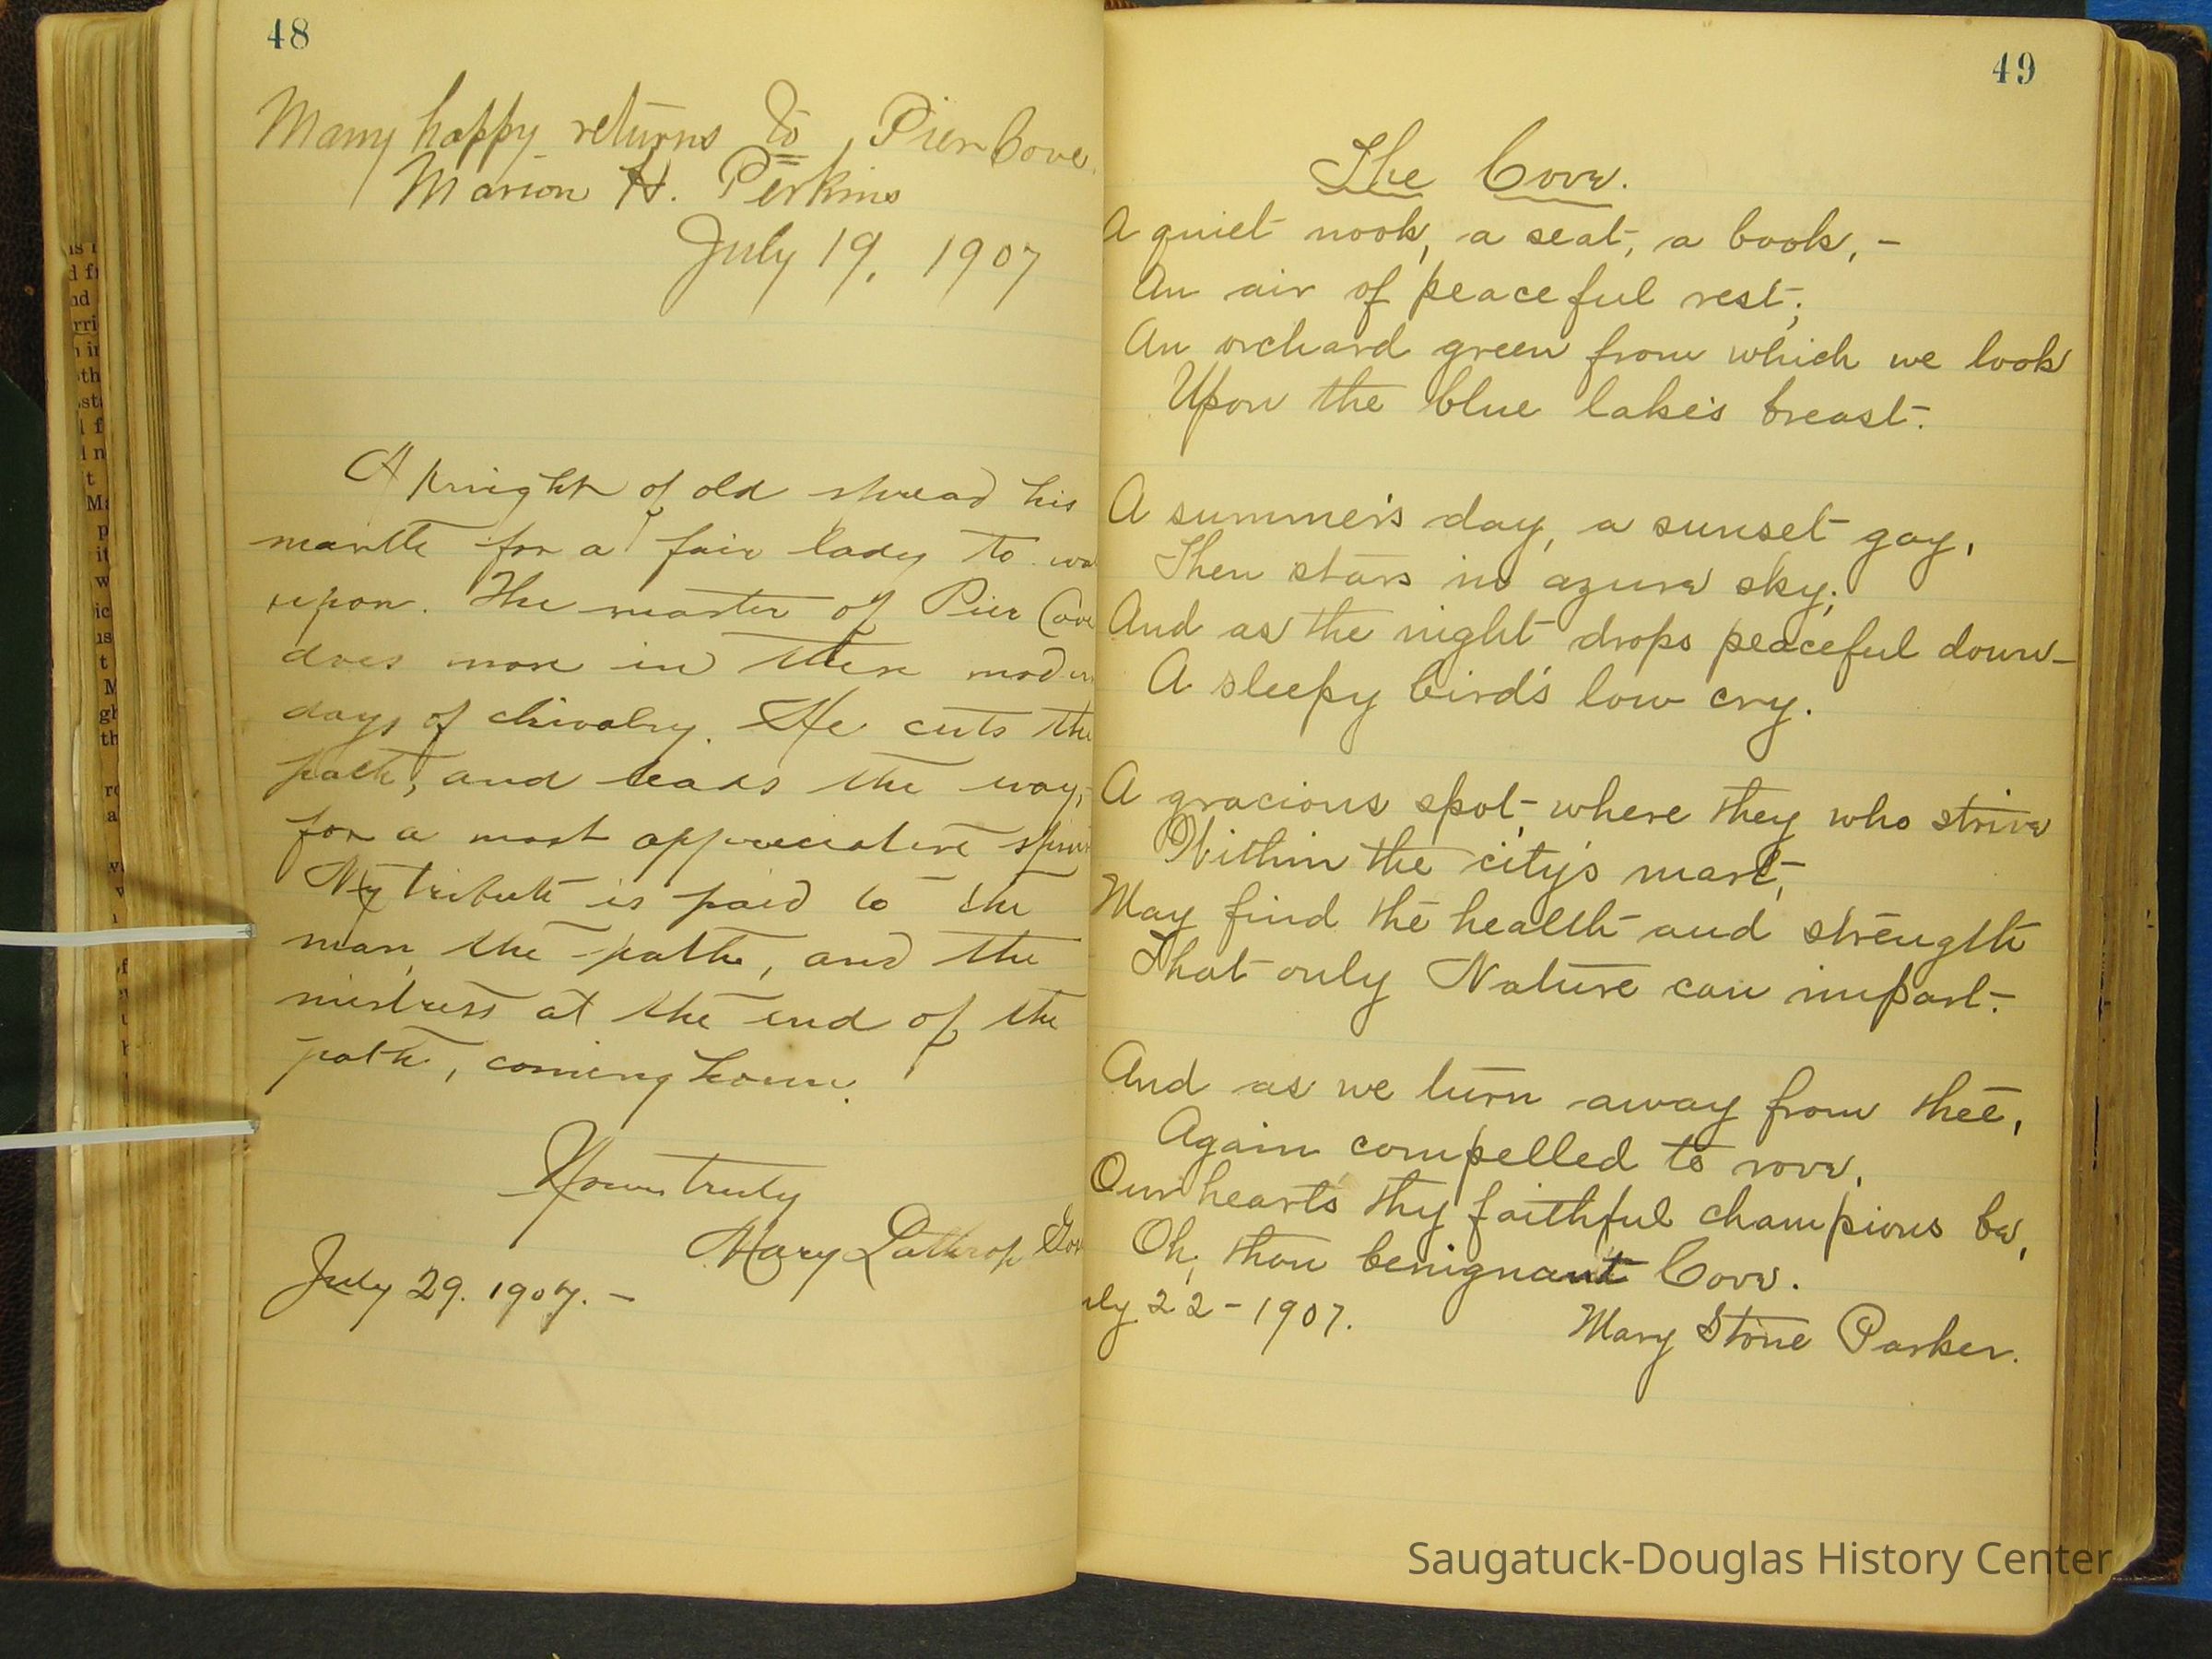 48
Many happy returns to Pier Cove.
Marion H. Perkins
July 19, 1907
A knight of old spread his
mantle for a fair lady to
upon. The master of Pier Cove
does more in these
days of chivalry. He cuts the
path, and leads the way,
for a most appreciative
My tribute is paid to the
man, the path, and the
mistress at the end of the
path, coming home.
Yours truly
Mary Lathrop
July 29. 1907. -
49
The Cove.
A quiet nook, a seat, a book, -
An air of peaceful rest;
An orchard green from which we look
Upon the blue lake's breast.
A summer's day, a sunset gay,
Then stars in azure sky;
And as the night drops peaceful down-
A sleepy bird's low cry.
A gracious spot, where they who strive
Within the city's mart,
May find the health and strength
That only Nature can impart.
And as we turn away from thee,
Again compelled to rove,
Our hearts thy faithful champions be,
Oh, thou benignant Cove.
uly 22-1907.
Mary Stone Parker.
Saugatuck-Douglas History Center